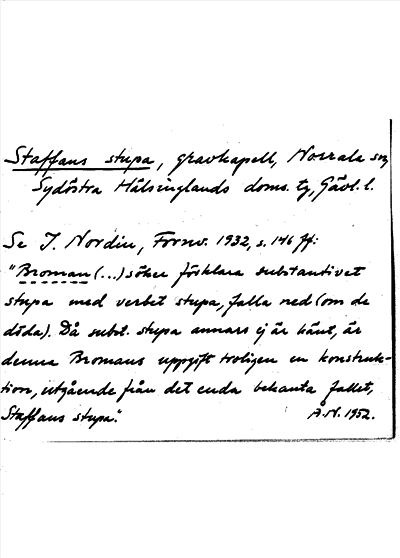 Staffans stupa, gravkapell, Norrala sn,
Sydöstra Hälsinglands doms. tg, Gävl. l.
Se I. Nordin, Fornv. 1932, s. 146 ff:
"Broman (...) söker förklara substantivet
stupa med verbet stupa, falla ned (om de
döda). Då subst. stupa annars ej är känt, är
denna Bromans uppgift troligen en konstruk-
tion, utgående från det enda bekanta fallet,
Staffans stupa."
Å.N. 1952.